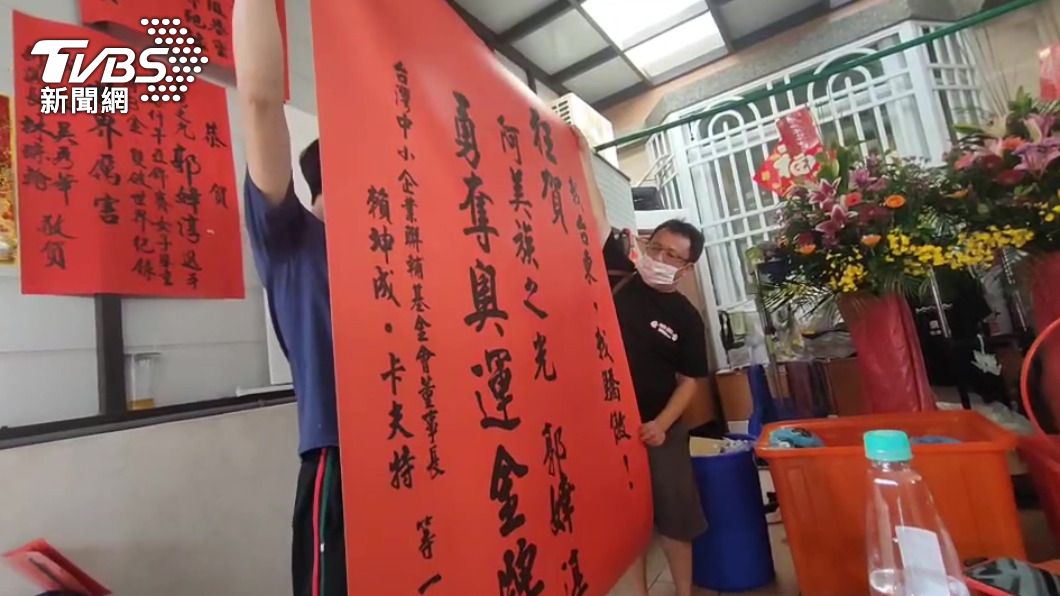 TVBS
新聞網
台東，我驕傲！
狂賀
阿美族之光 郭婞淳
勇奪奧運金牌
台灣中小企業聯輔基金會董事長
賴坤成．卡夫特 等一
恭賀
之光 郭婞淳
賽女子舉重
金 雙破世界紀錄
厲害
敬賀
福